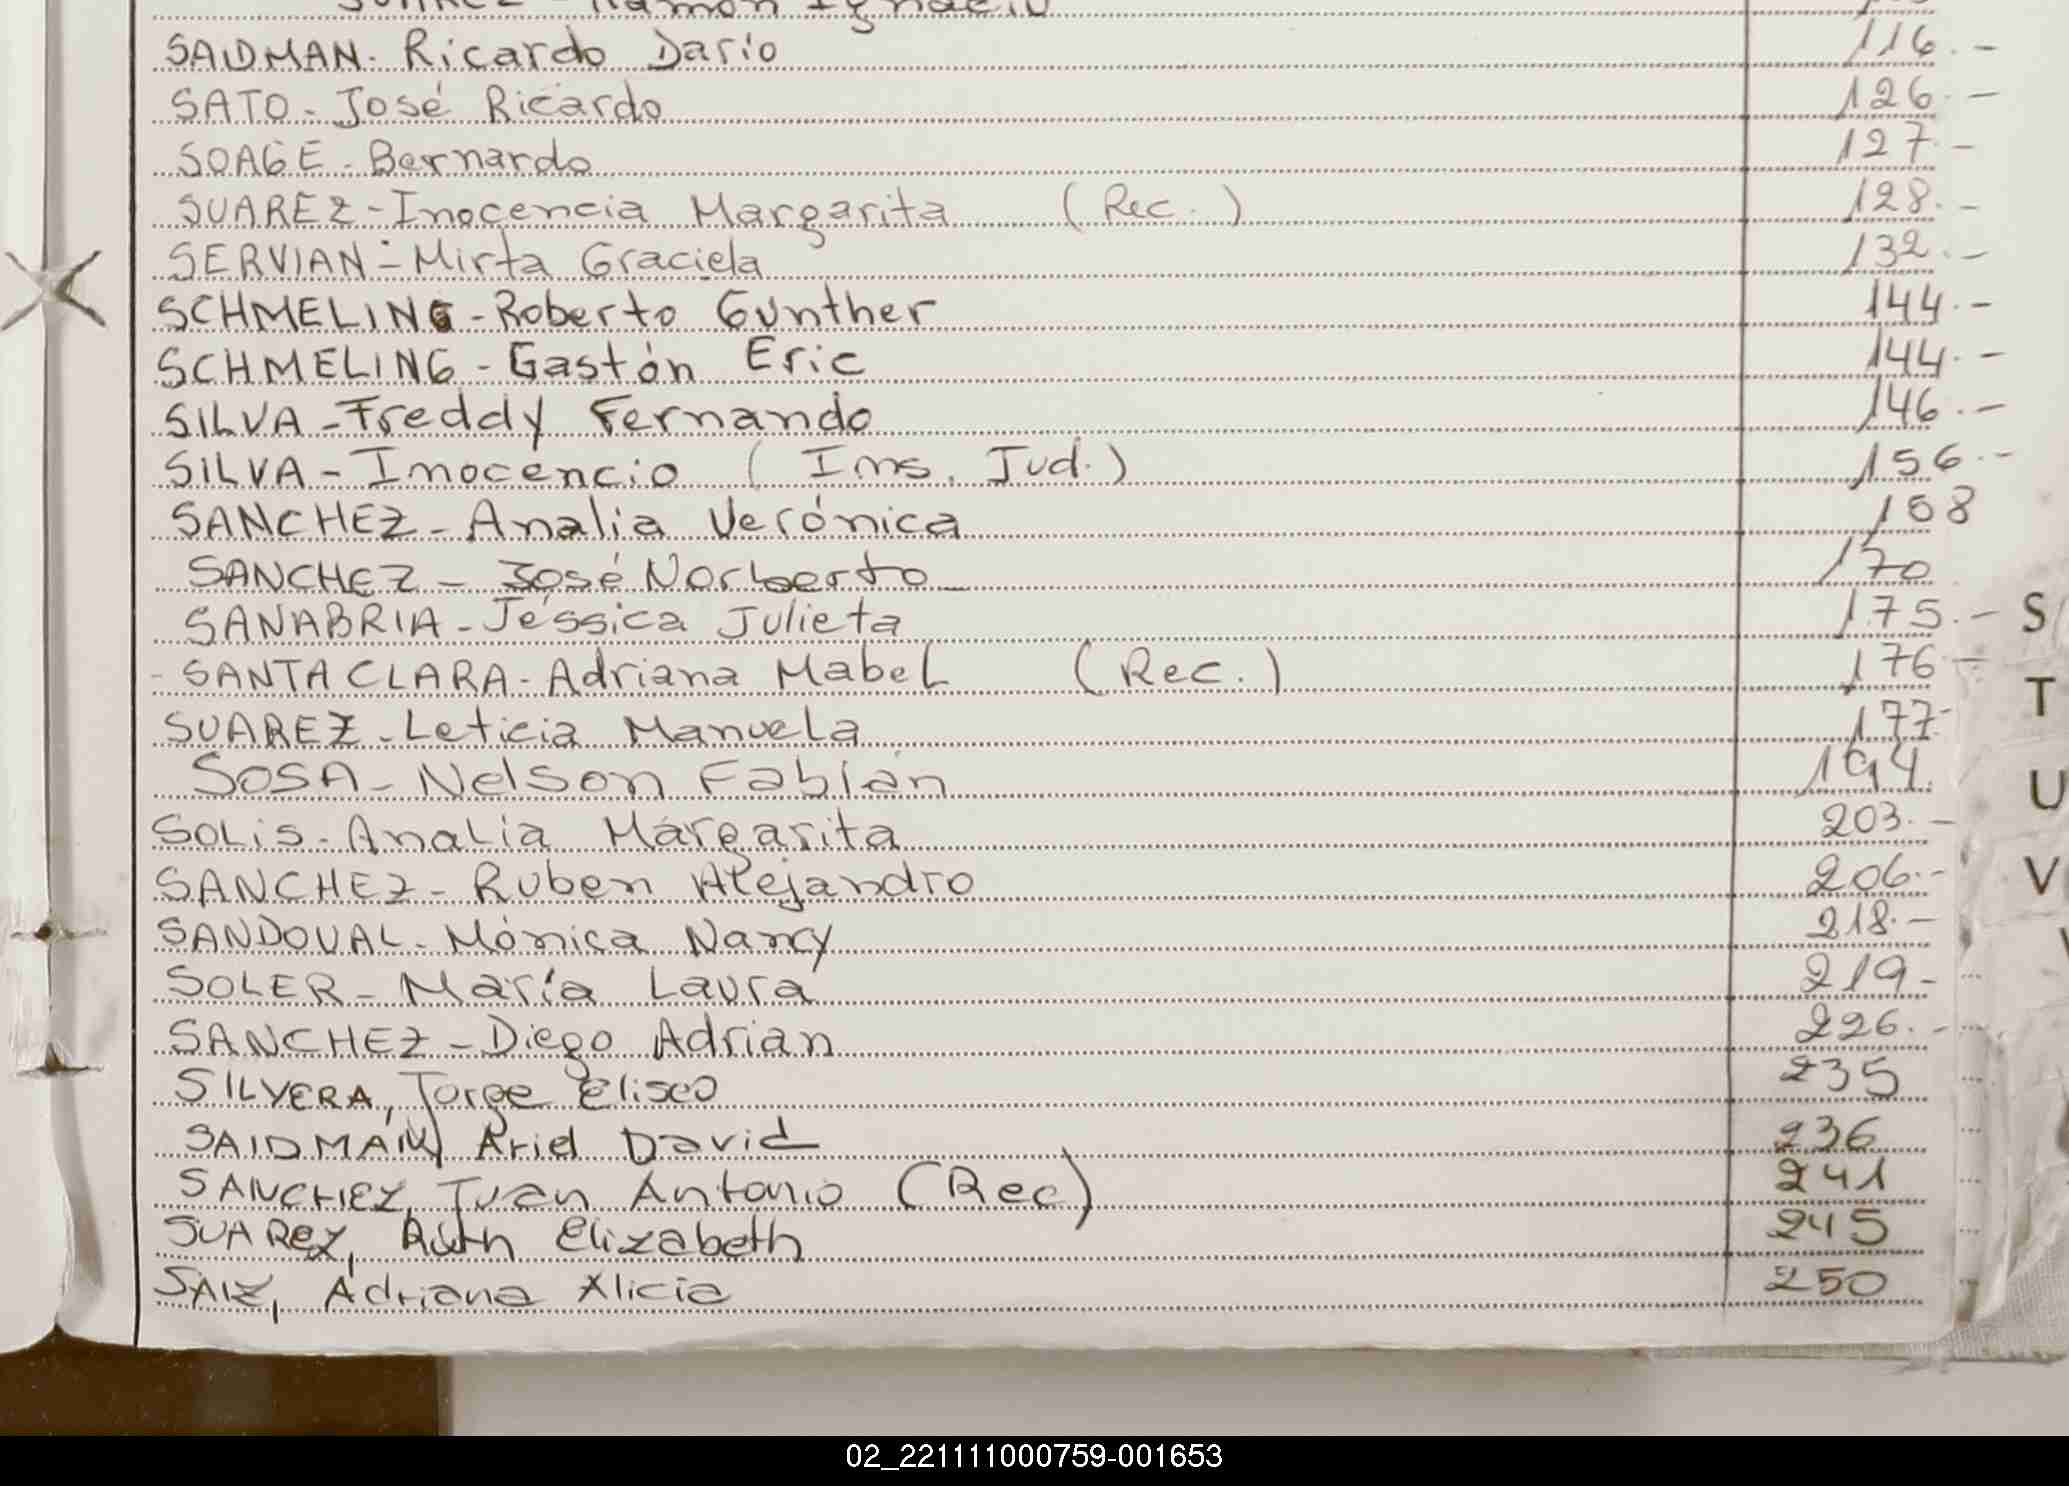 SUAREZ - Ramón Ignacio
SAIDMAN. Ricardo Dario 116.-
SATO - José Ricardo 126.-
SOAGE - Bernardo 127.-
SUAREZ - Inocencia Margarita (Rec.) 128.-
SERVIAN - Mirta Graciela 132.-
SCHMELING - Roberto Gunther 144.-
SCHMELING - Gastón Eric 144.-
SILVA - Freddy Fernando 146.-
SILVA - Inocencio (Ins. Jud.) 156.-
SANCHEZ - Analia Verónica 158
SANCHEZ - José Norberto 170
SANABRIA - Jéssica Julieta 175.-
- SANTA CLARA - Adriana Mabel (Rec.) 176.-
SUAREZ - Leticia Manuela 177.-
SOSA - Nelson Fabián 194.
SOLIS - Analía Margarita 203.-
SANCHEZ - Ruben Alejandro 206.-
SANDOVAL - Mónica Nancy 218.-
SOLER - María Laura 219-
SANCHEZ - Diego Adrian 226.-
SILVERA, Jorge Eliseo 235
SAIDMAN, Ariel David 236
SANCHEZ, Juan Antonio (Rec) 241
SUAREZ, Ruth Elizabeth 245
SAIZ, Adriana Alicia 250
S
T
U
V
02_221111000759-001653